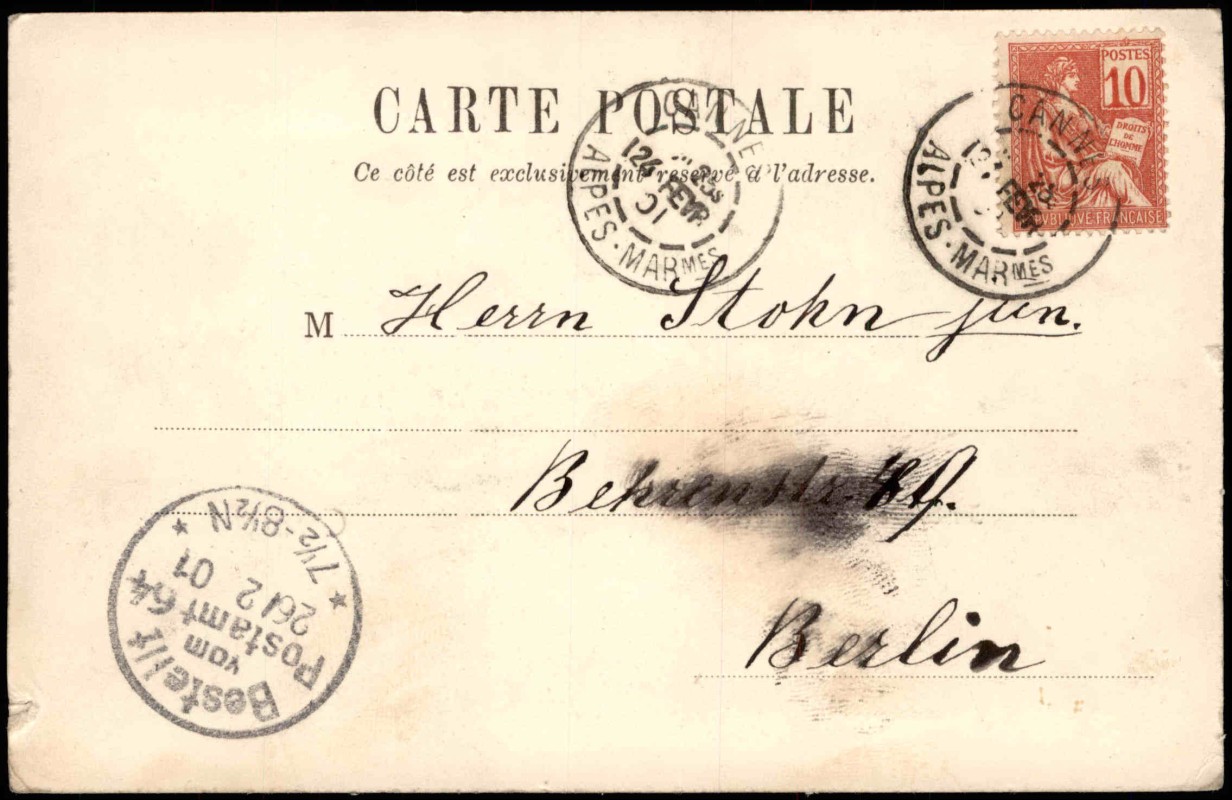 CARTE POSTALE
Ce côté est exclusivement réservé à l'adresse.
POSTES
10
DROITS
DE
L'HOMME
REPUBLIQUE FRANÇAISE
CANNES
24 FEVR
01
ALPES-MARMES
CANNES
FEVR
ALPES-MARMES
M Herrn Stohn jun.
Behrenstr.
Berlin
Bestellt
vom
Postamt 64
26/2 01
7½-8½N